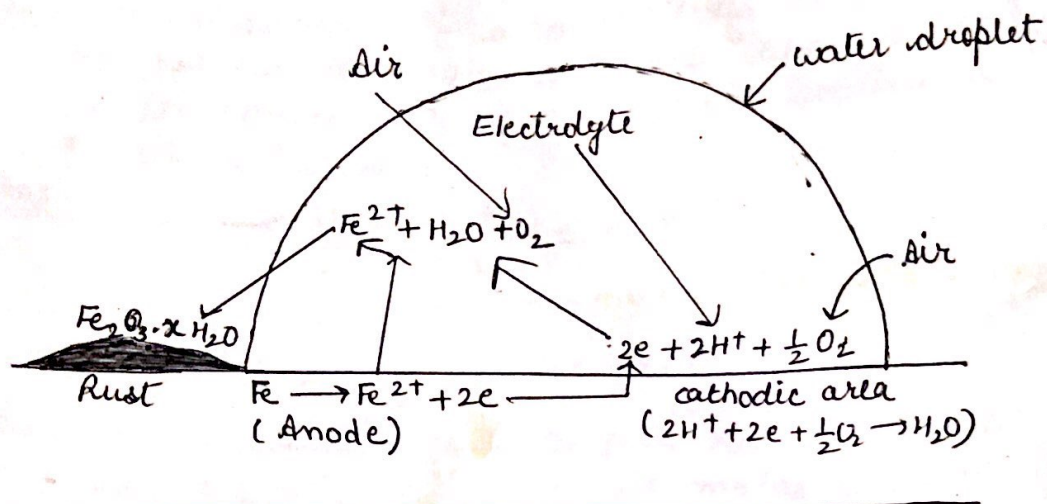 water droplet
Air
Electrolyte
Fe²⁺ + H₂O + O₂
Air
Fe₂O₃.x H₂O
2e + 2H⁺ + ½ O₂
Rust
Fe → Fe²⁺ + 2e
cathodic area
(Anode)
(2H⁺ + 2e + ½O₂ → H₂O)